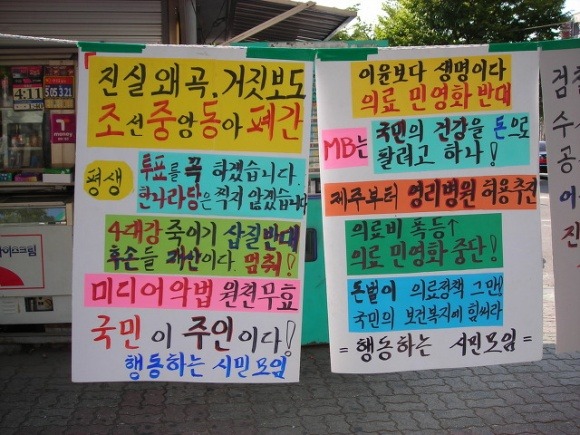 진실왜곡, 거짓보도
조선중앙동아 폐간
평생
투표를 꼭 하겠습니다.
한나라당은 찍지 않겠습니다
4대강 죽이기 삽질반대
후손들 재산이다. 멈춰!
미디어악법 원천무효
국민이 주인이다!
행동하는 시민모임
이윤보다 생명이다
의료 민영화 반대
MB는
국민의 건강을 돈으로
팔려고 하나!
제주부터 영리병원 허용추진
의료비 폭등↑
의료 민영화 중단!
돈벌이 의료정책 그만!
국민의 보건복지에 힘써라
= 행동하는 시민모임 =
검찰
수
공
진